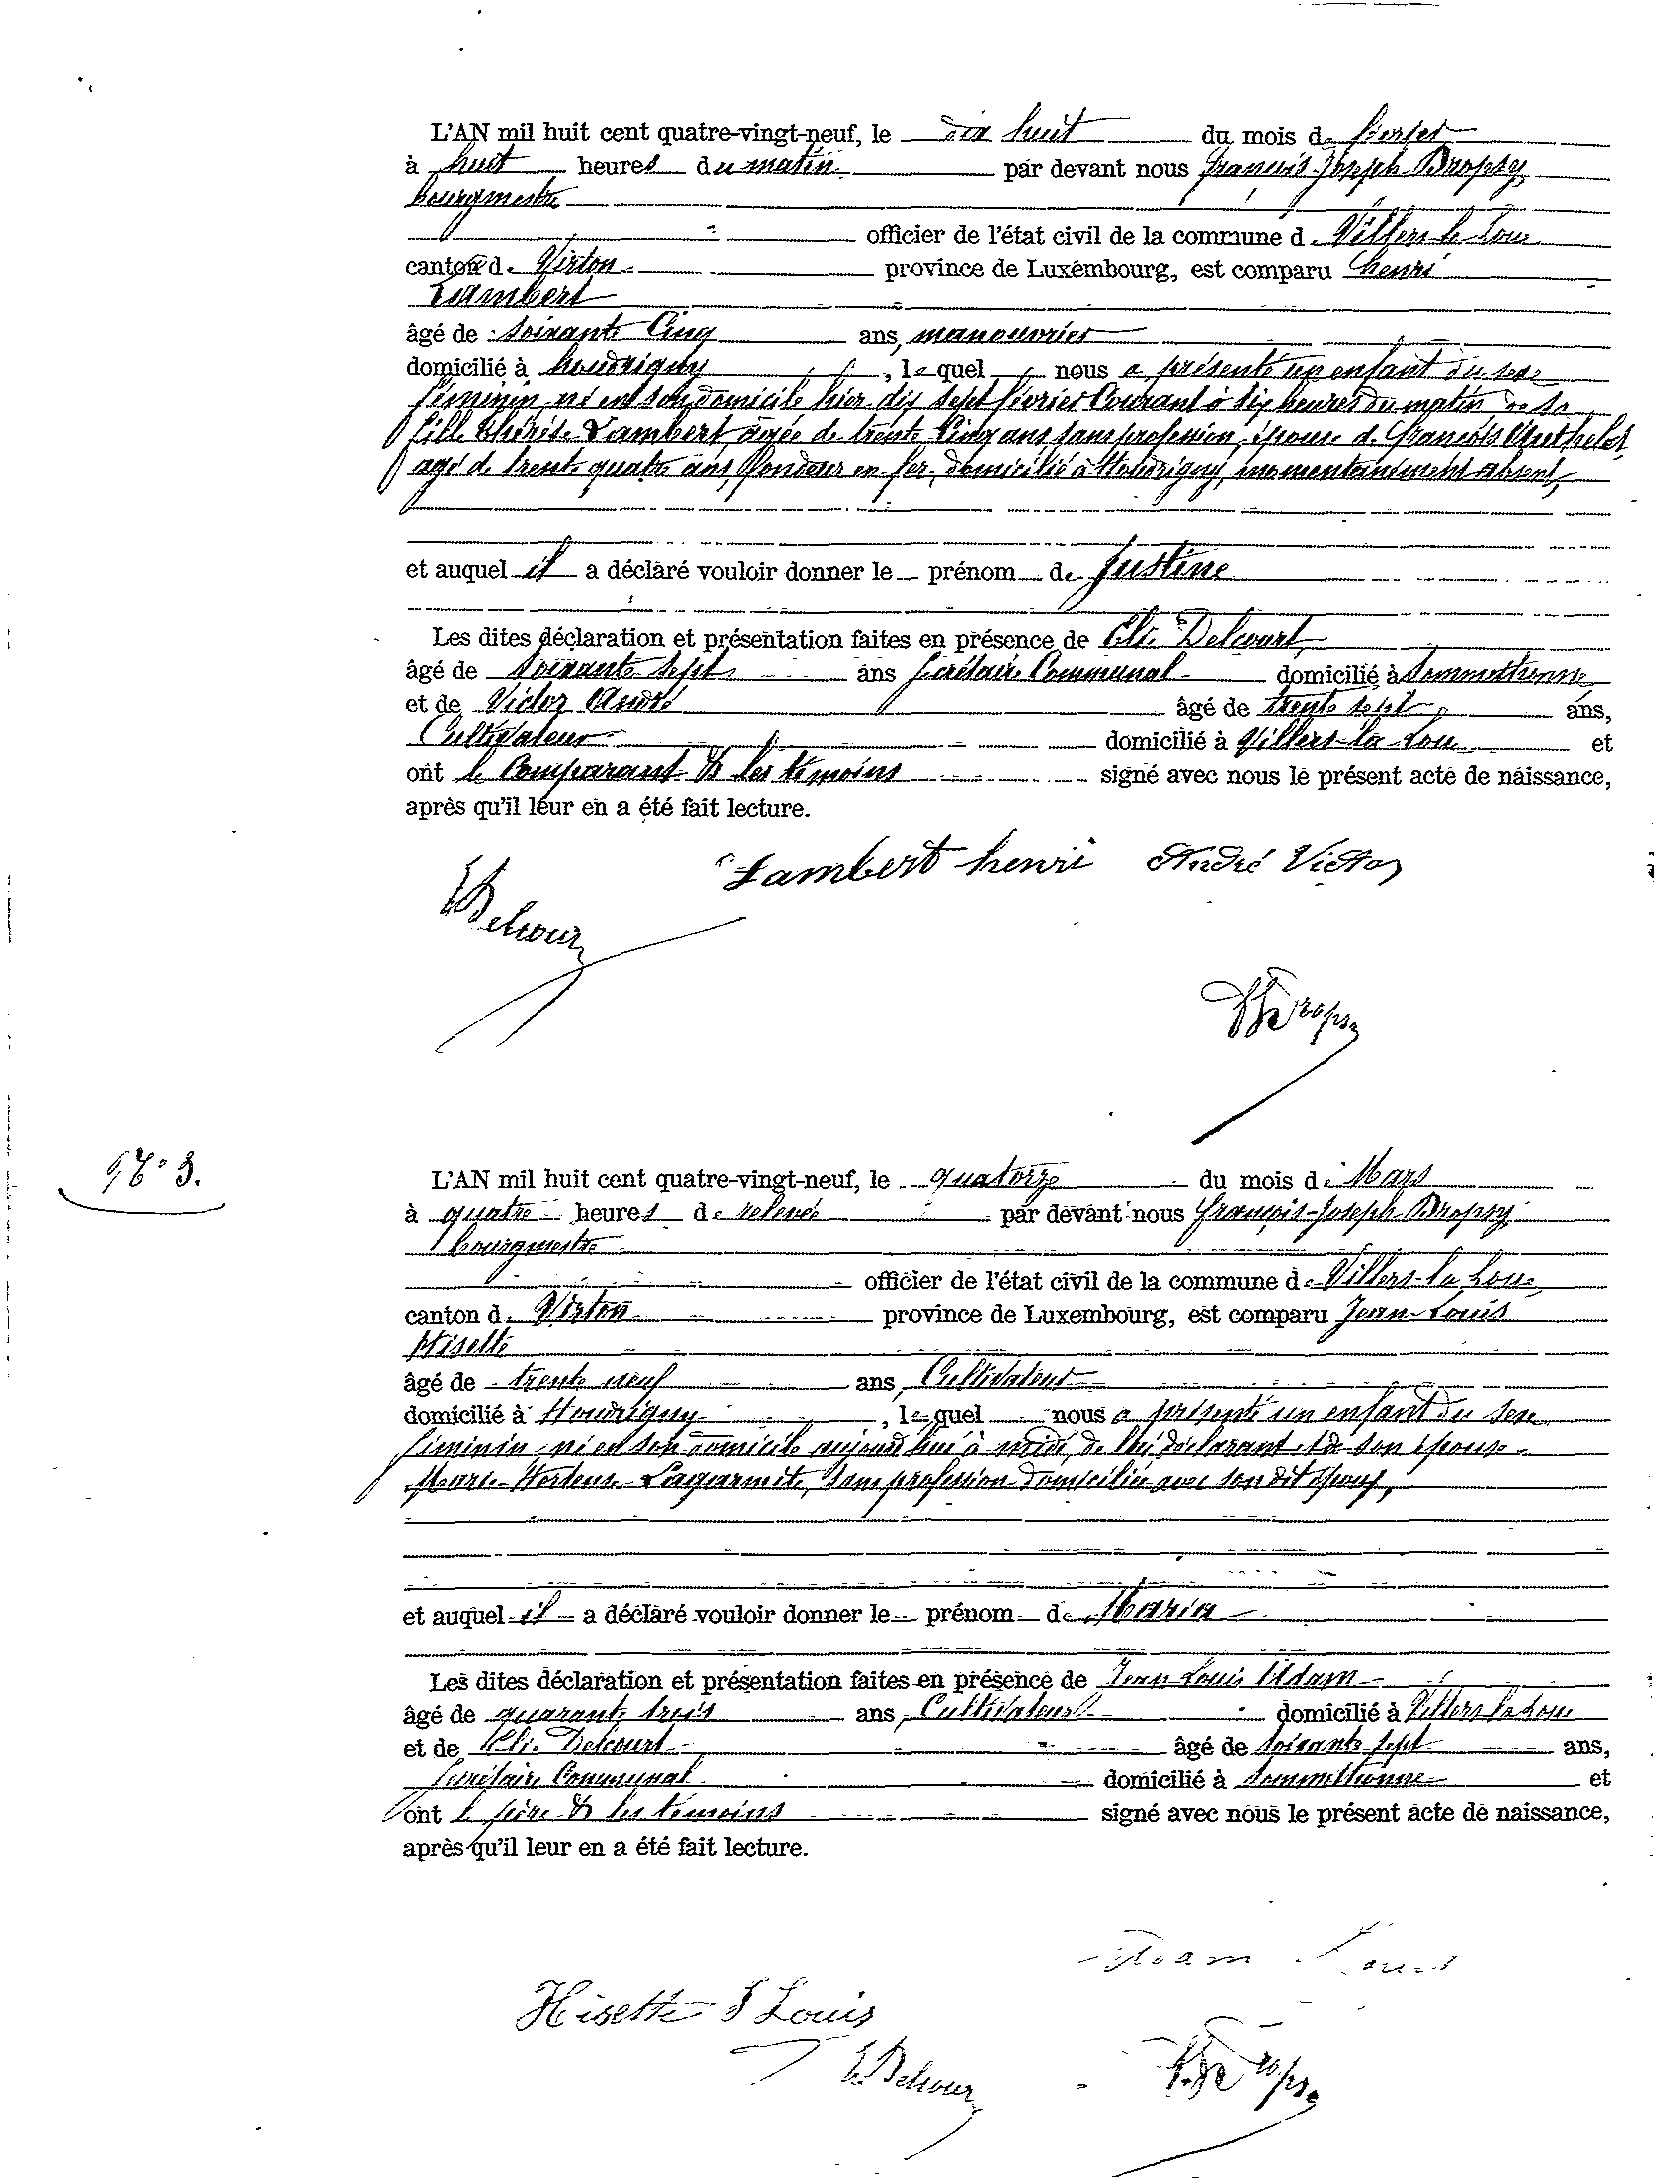 L'AN mil huit cent quatre-vingt-neuf, le dix huit du mois de février
à huit heures du matin par devant nous François-Joseph Dropsy
bourgmestre
officier de l'état civil de la commune de Villers-la-Loue
canton de Virton province de Luxembourg, est comparu henri
Lambert
âgé de soixante Cinq ans, manouvrier
domicilié à houdrigny, lequel nous a présenté un enfant du sexe
féminin, né en son domicile hier dix sept février Courant à six heures du matin de sa
fille Thérèse Lambert agée de trente Cinq ans sans profession, épouse de François
agé de trente quatre ans, fondeur en fer, domicilié à Houdrigny, momentanément absent,
et auquel il a déclaré vouloir donner le prénom de Justine
Les dites déclaration et présentation faites en présence de Elie Delcourt,
âgé de soixante sept ans secrétaire Communal domicilié à Sommethonne
et de Victor André âgé de trente sept ans,
Cultivateur domicilié à Villers-la-Loue et
ont le Comparant & les témoins signé avec nous le présent acte de naissance,
après qu'il leur en a été fait lecture.
Lambert henri André Victor
E Delcour
FJDropsy
N° 3.
L'AN mil huit cent quatre-vingt-neuf, le quatorze du mois de Mars
à quatre heures de relevée par devant nous François-Joseph Dropsy
bourgmestre
officier de l'état civil de la commune de Villers-la-Loue
canton de Virton province de Luxembourg, est comparu Jean-Louis
Hisette
âgé de trente neuf ans, Cultivateur
domicilié à Houdrigny, lequel nous a présenté un enfant du sexe
féminin, né en son domicile aujourd'hui à midi, de lui déclarant & de son épouse
Marie-Hortense Lagarmitte, sans profession domiciliée avec son dit époux,
et auquel il a déclaré vouloir donner le prénom de Maria
Les dites déclaration et présentation faites en présence de Jean Louis Adam
âgé de quarante trois ans, Cultivateur domicilié à Villers la Loue
et de Elie Delcourt âgé de soixante sept ans,
secrétaire Communal domicilié à Sommethonne et
ont le père & les témoins signé avec nous le présent acte de naissance,
après qu'il leur en a été fait lecture.
Adam Louis
Hisette J Louis
E Delcour FJDropsy